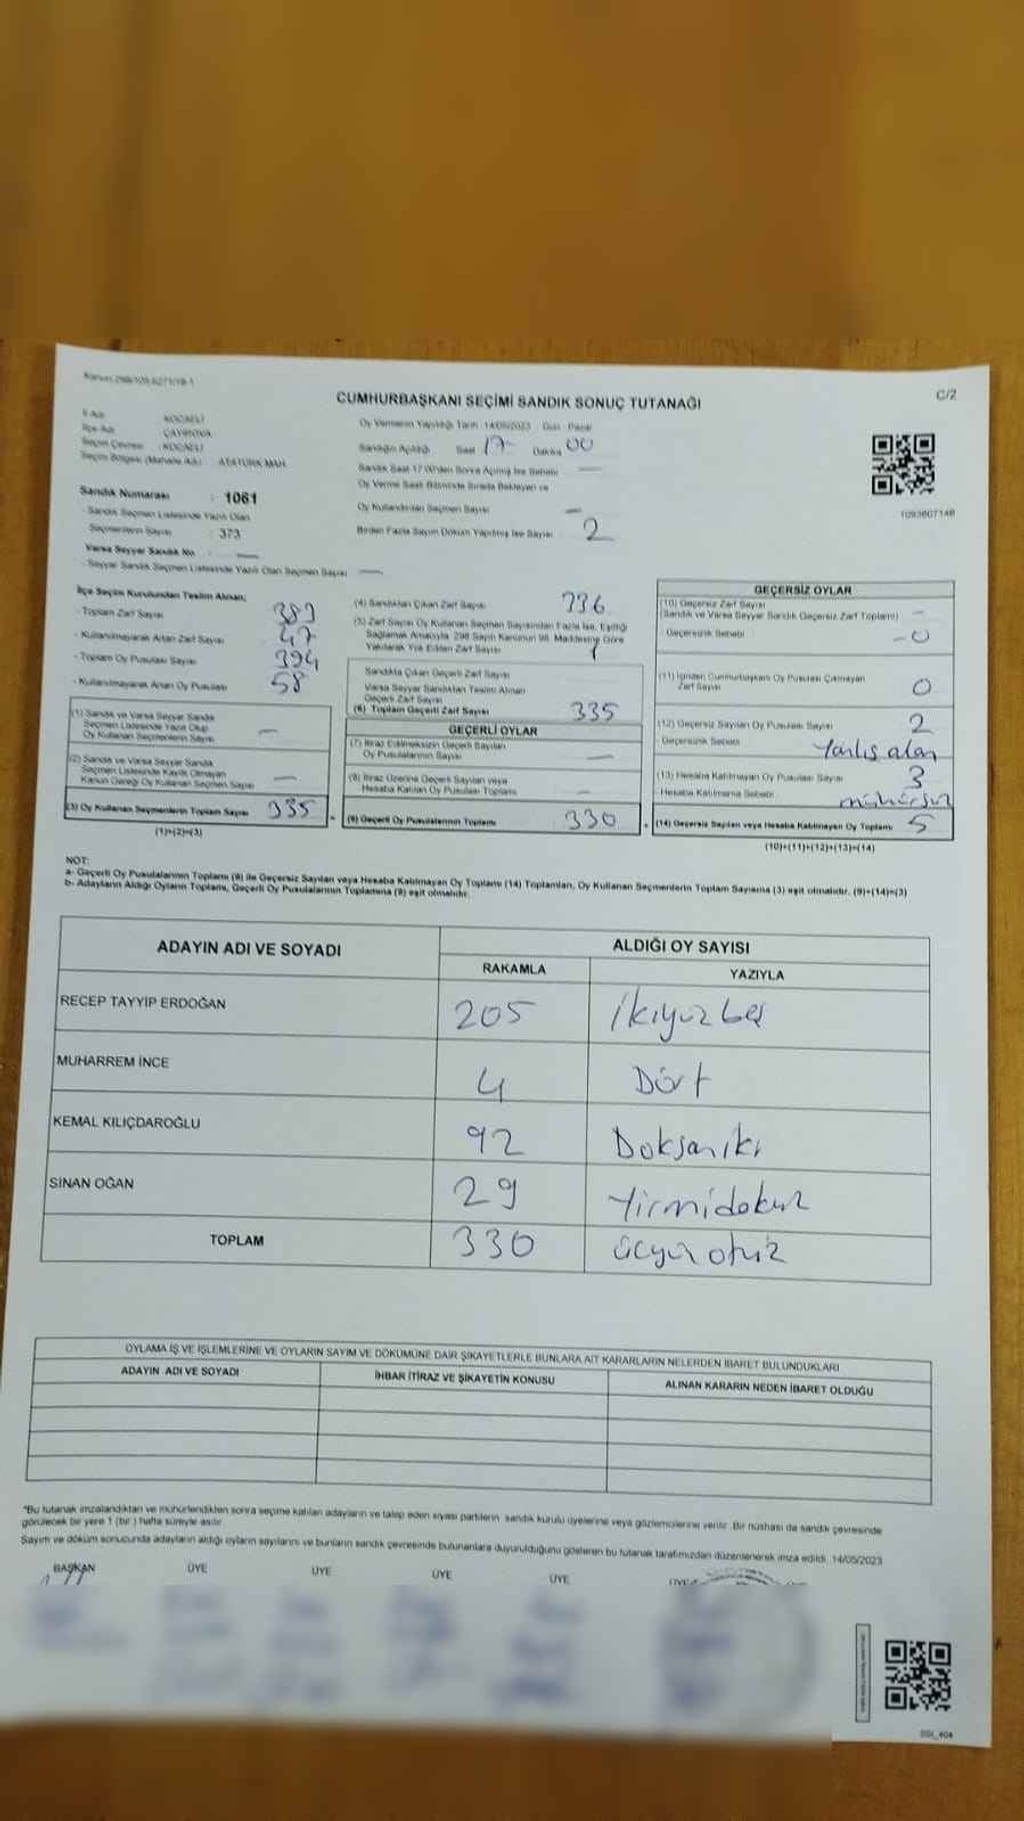 C/2
CUMHURBAŞKANI SEÇİMİ SANDIK SONUÇ TUTANAĞI
İl Adı : KOCAELİ
İlçe Adı : ÇAYIROVA
Seçim Çevresi : KOCAELİ
Seçim Bölgesi (Mahalle Adı) : ATATÜRK MAH.
Oy Vermenin Yapıldığı Tarih 14/05/2023 Gün Pazar
Sandığın Açıldığı Saat 17 Dakika 00
Sandık Saat 17.00'den Sonra Açılmış İse Sebebi
Oy Verme Saati Bitiminde Sırada Bekleyen ve
Oy Kullandırılan Seçmen Sayısı
Birden Fazla Sayım Döküm Yapılmış İse Sayısı 2
Sandık Numarası : 1061
- Sandık Seçmen Listesinde Yazılı Olan
Seçmenlerin Sayısı : 373
Varsa Seyyar Sandık No :
- Seyyar Sandık Seçmen Listesinde Yazılı Olan Seçmen Sayısı
1093607146
İlçe Seçim Kurulundan Teslim Alınan;
- Toplam Zarf Sayısı 383
- Kullanılmayarak Artan Zarf Sayısı 47
- Toplam Oy Pusulası Sayısı 394
- Kullanılmayarak Artan Oy Pusulası 58
(1) Sandık ve Varsa Seyyar Sandık
Seçmen Listesinde Yazılı Olup
Oy Kullanan Seçmenlerin Sayısı
(2) Sandık ve Varsa Seyyar Sandık
Seçmen Listesinde Kayıtlı Olmayan
Kanun Gereği Oy Kullanan Seçmen Sayısı
(3) Oy Kullanan Seçmenlerin Toplam Sayısı 335
(1)+(2)=(3)
(4) Sandıktan Çıkan Zarf Sayısı 336
(5) Zarf Sayısı Oy Kullanan Seçmen Sayısından Fazla İse, Eşitliği
Sağlamak Amacıyla 298 Sayılı Kanunun 98. Maddesine Göre
Yakılarak Yok Edilen Zarf Sayısı 1
Sandıkta Çıkan Geçerli Zarf Sayısı
Varsa Seyyar Sandıktan Teslim Alınan
Geçerli Zarf Sayısı
(6) Toplam Geçerli Zarf Sayısı 335
GEÇERLİ OYLAR
(7) İtiraz Edilmeksizin Geçerli Sayılan
Oy Pusulalarının Sayısı
(8) İtiraz Üzerine Geçerli Sayılan veya
Hesaba Katılan Oy Pusulası Toplamı
(9) Geçerli Oy Pusulalarının Toplamı 330
GEÇERSİZ OYLAR
(10) Geçersiz Zarf Sayısı
(Sandık ve Varsa Seyyar Sandık Geçersiz Zarf Toplamı)
- Geçersizlik Sebebi 0
(11) İçinden Cumhurbaşkanı Oy Pusulası Çıkmayan
Zarf Sayısı 0
(12) Geçersiz Sayılan Oy Pusulası Sayısı 2
- Geçersizlik Sebebi Yanlış alan
(13) Hesaba Katılmayan Oy Pusulası Sayısı 3
- Hesaba Katılmama Sebebi mühürsüz
(14) Geçersiz Sayılan veya Hesaba Katılmayan Oy Toplamı 5
(10)+(11)+(12)+(13)=(14)
NOT:
a- Geçerli Oy Pusulalarının Toplamı (9) ile Geçersiz Sayılan veya Hesaba Katılmayan Oy Toplamı (14) Toplamları, Oy Kullanan Seçmenlerin Toplam Sayısına (3) eşit olmalıdır. (9)+(14)=(3)
b- Adayların Aldığı Oyların Toplamı, Geçerli Oy Pusulalarının Toplamına (9) eşit olmalıdır.
ADAYIN ADI VE SOYADI
ALDIĞI OY SAYISI
RAKAMLA YAZIYLA
RECEP TAYYİP ERDOĞAN 205 İkiyüzbeş
MUHARREM İNCE 4 Dört
KEMAL KILIÇDAROĞLU 92 Doksaniki
SİNAN OĞAN 29 Yirmidokuz
TOPLAM 330 üçyüz otuz
OYLAMA İŞ VE İŞLEMLERİNE VE OYLARIN SAYIM VE DÖKÜMÜNE DAİR ŞİKAYETLERLE BUNLARA AİT KARARLARIN NELERDEN İBARET BULUNDUKLARI
ADAYIN ADI VE SOYADI
İHBAR İTİRAZ VE ŞİKAYETİN KONUSU
ALINAN KARARIN NEDEN İBARET OLDUĞU
"Bu tutanak imzalandıktan ve mühürlendikten sonra seçime katılan adayların ve talep eden siyasi partilerin sandık kurulu üyelerine veya gözlemcilerine verilir. Bir nüshası da sandık çevresinde
görülecek bir yere 1 (bir) hafta süreyle asılır.
Sayım ve döküm sonucunda adayların aldığı oyların sayılarını ve bunların sandık çevresinde bulunanlara duyurulduğunu gösteren bu tutanak tarafımızdan düzenlenerek imza edildi. 14/05/2023
BAŞKAN ÜYE ÜYE ÜYE ÜYE ÜYE